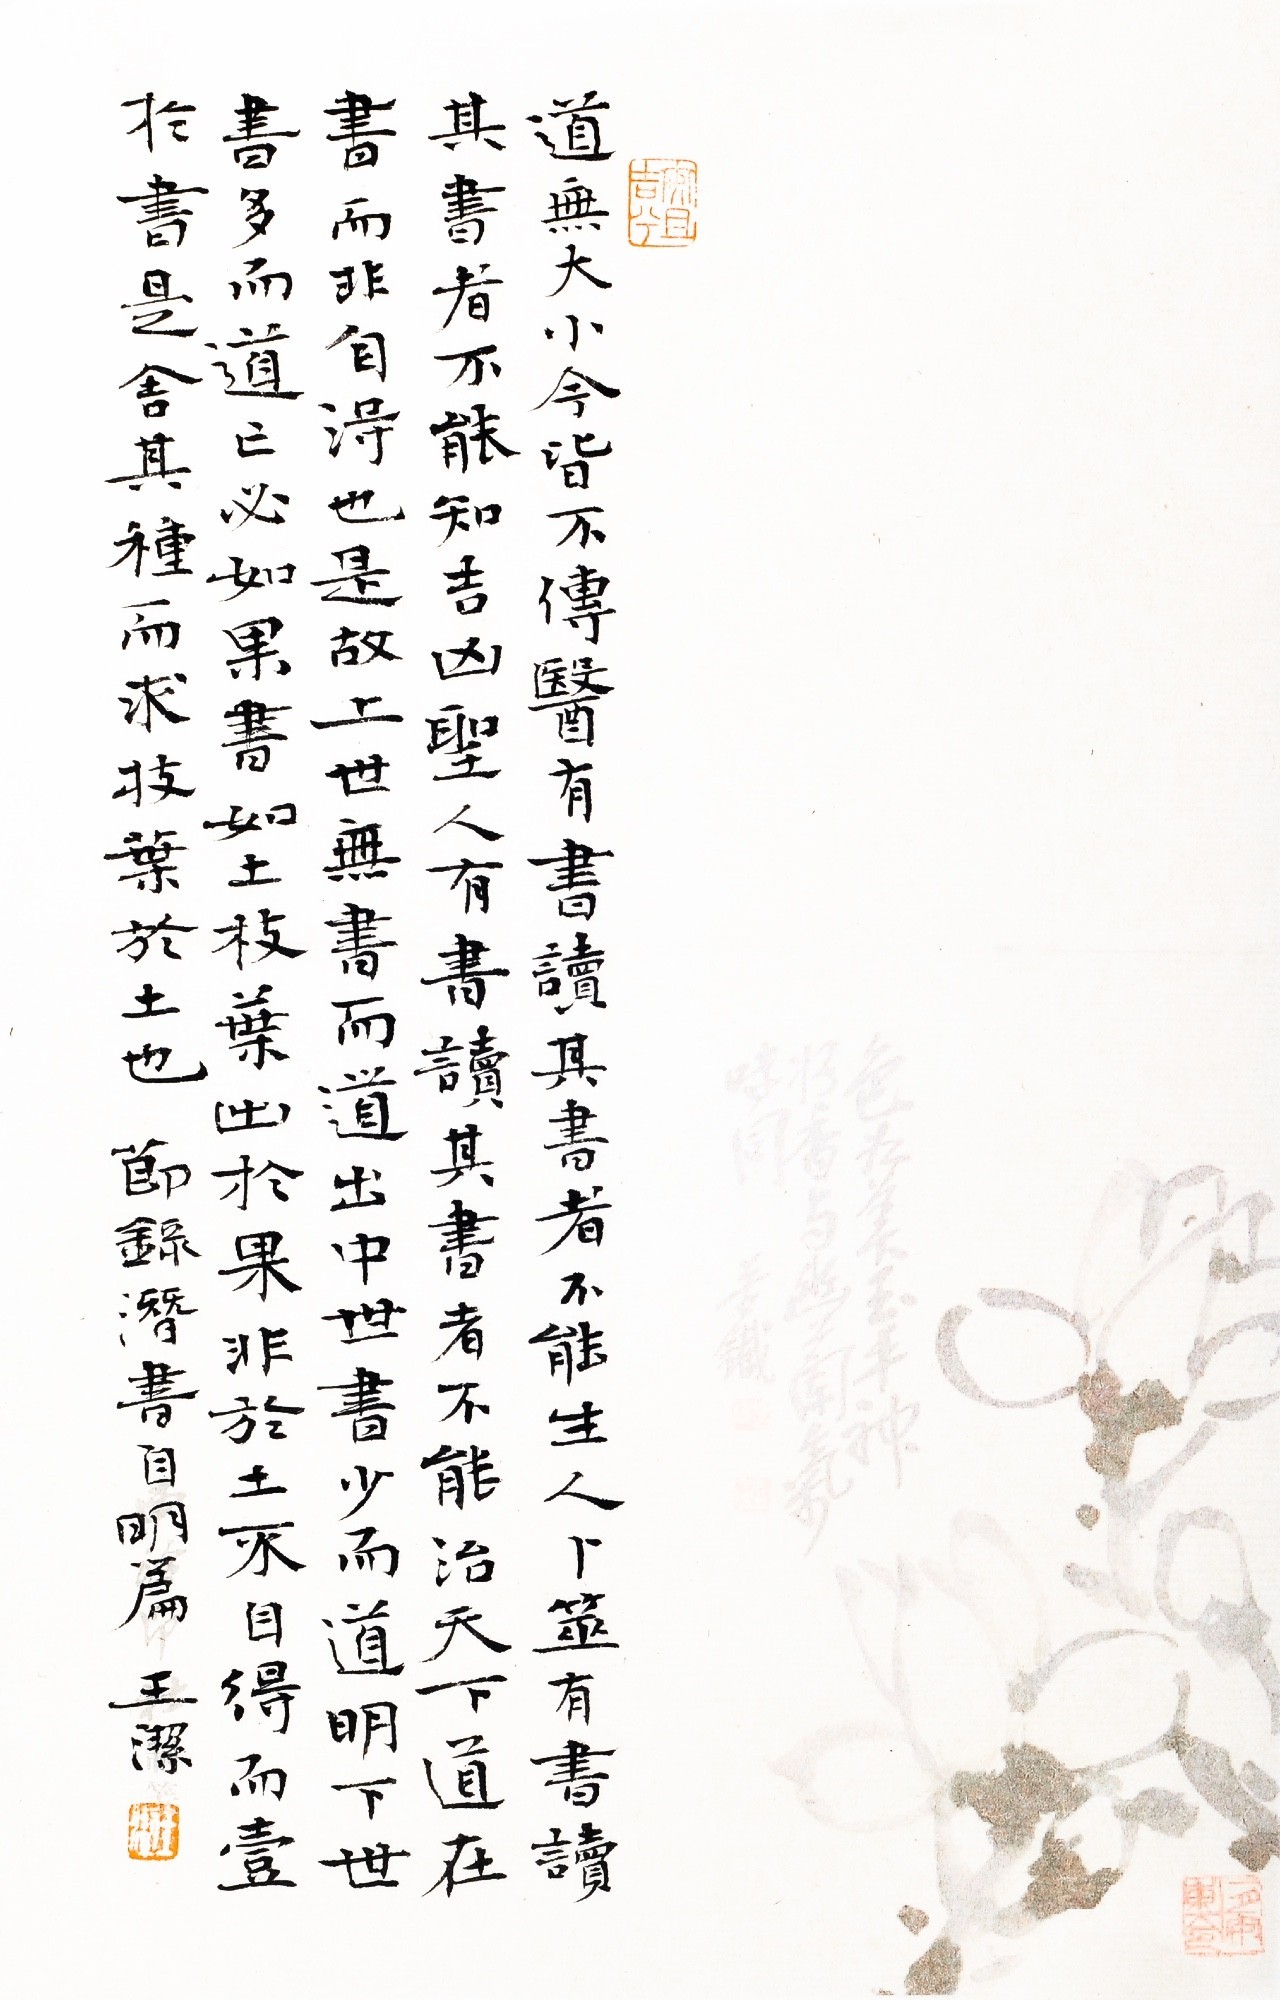 道無大小今皆不傳醫有書讀其書者不能生人卜筮有書讀
其書者不能知吉凶聖人有書讀其書者不能治天下道在
書而非自得也是故上世無書而道出中世書少而道明下世
書多而道亡必如果書如土枝葉出於果非於土不自得而壹
於書是舍其種而求枝葉於土也 節錄潛書自明篇 王潔